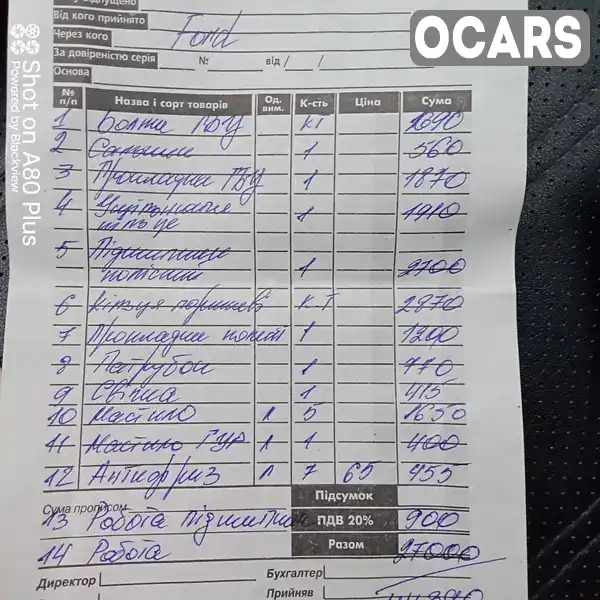 OCARS
Від кого прийнято
Через кого Ford
За довіреністю серія № від / /
Основа
№ п/п Назва і сорт товарів Од. вим. К-сть Ціна Сума
1 Болти ГБЦ КТ 1690
2 Сальники 1 560
3 Прокладка ГБЦ 1 1870
4 1 1910
5 Підшипники
1 2700
6 Кільця поршневі КТ 2870
7 Прокладка 1 1200
8 Патрубок 1 770
9 Свічка 1 415
10 Мастило л 5 1650
11 Мастило ГУР л 1 400
12 Антифріз л 7 65 455
Підсумок
Сума прописом
13 Робота ПДВ 20% 900
14 Робота Разом 27000
Директор Бухгалтер
Прийняв
Shot on A80 Plus
Powered by Blackview